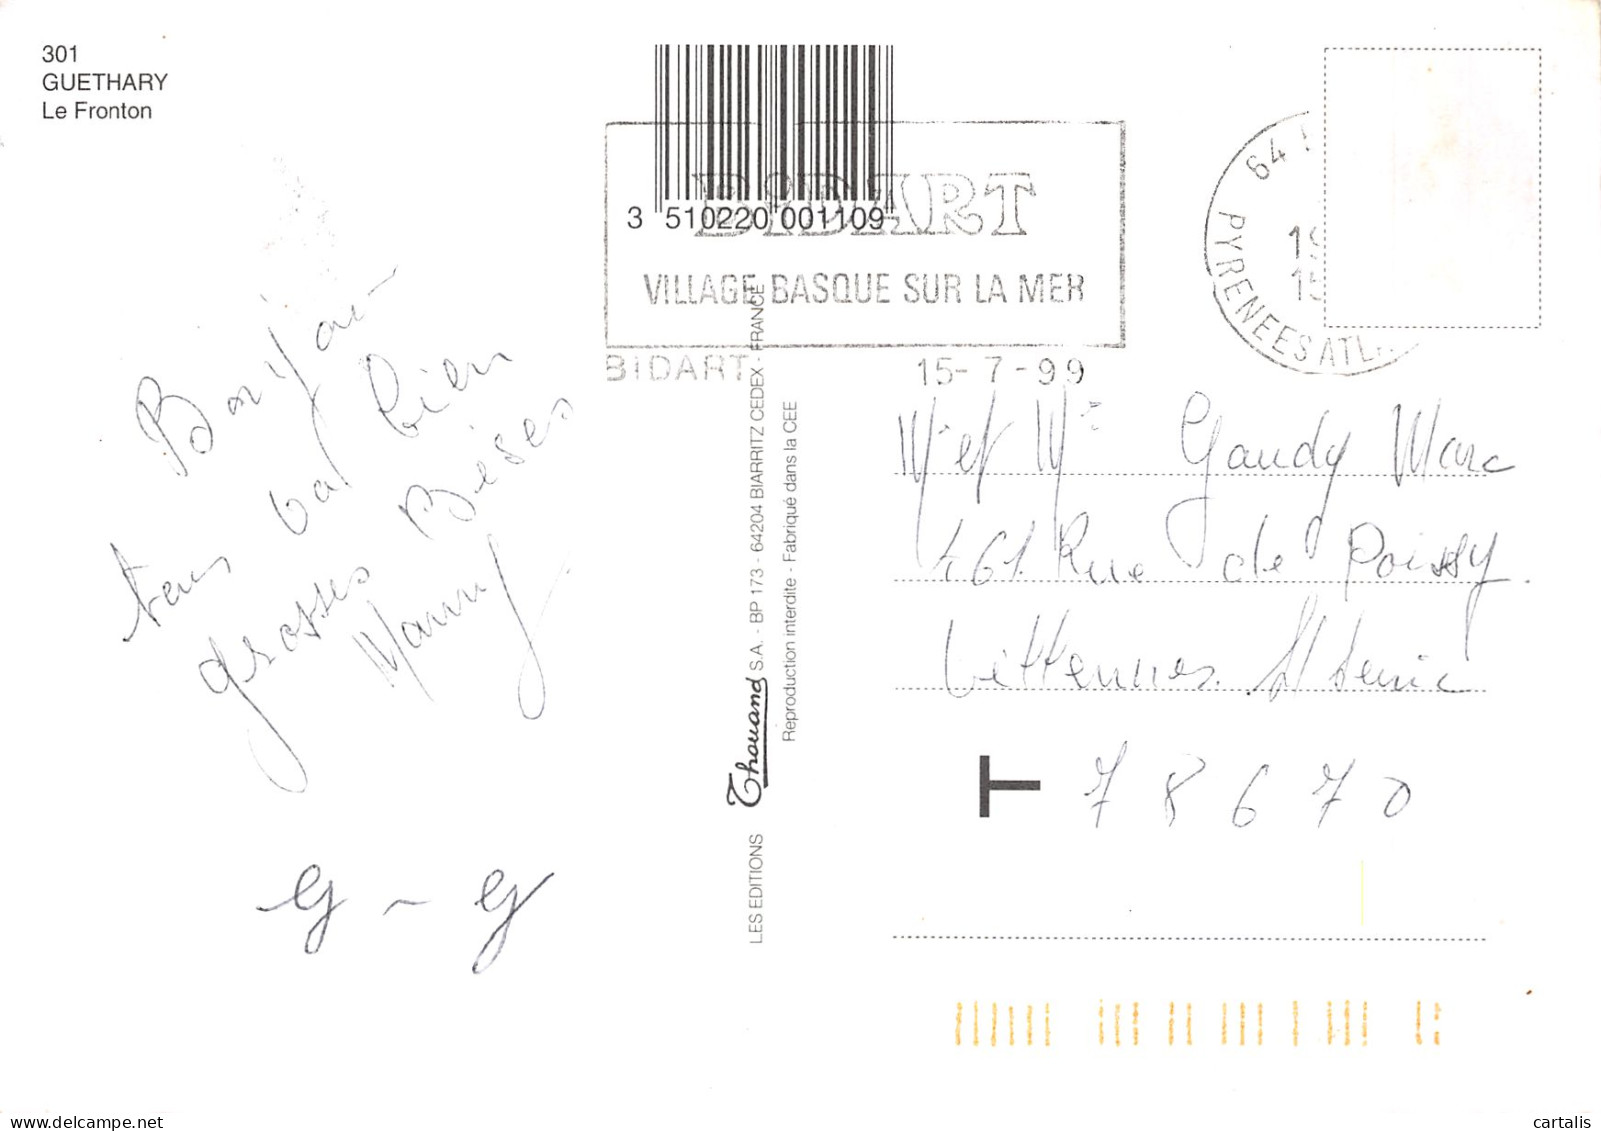 301
GUETHARY
Le Fronton
3 510220 001109
BIDART
VILLAGE BASQUE SUR LA MER
BIDART 15-7-99
64
PYRENEES ATL.
19
15
tous va bien
grosses Bises
G ~ G
LES EDITIONS Thouand S.A. - BP 173 - 64204 BIARRITZ CEDEX - FRANCE
Reproduction interdite - Fabriqué dans la CEE
Mr et Me Gaudy Marc
461 Rue de Poissy.
Vittennes St Denis
T 78670
cartalis